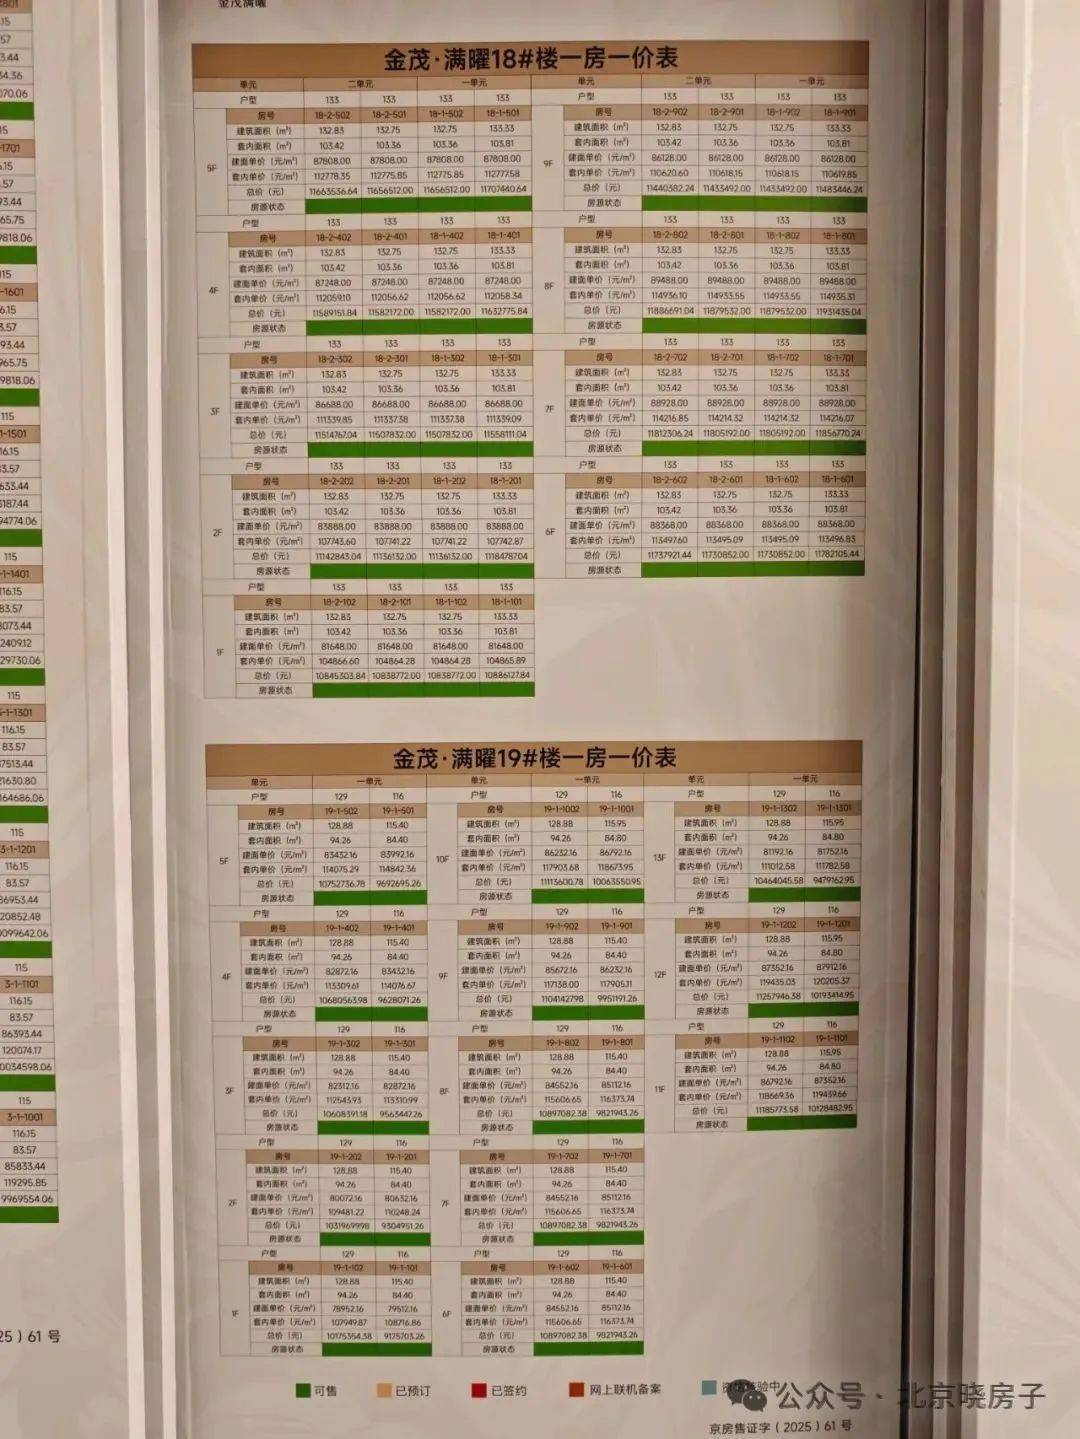 金茂满曜
3-1-1201
116.15
83.57
86953.44
120852.48
3-1-1101
116.15
83.57
86393.44
120074.17
115
3-1-1001
116.15
83.57
85833.44
119295.85
9969554.06
金茂·满曜18#楼一房一价表
单元 二单元 一单元 单元 二单元 一单元
户型 133 133 133 133 户型 133 133 133 133
5F 9F
房号 18-2-502 18-2-501 18-1-502 18-1-501 房号 18-2-902 18-2-901 18-1-902 18-1-901
建筑面积（m²） 132.83 132.75 132.75 133.33 建筑面积（m²） 132.83 132.75 132.75 133.33
套内面积（m²） 103.42 103.36 103.36 103.81 套内面积（m²） 103.42 103.36 103.36 103.81
建面单价（元/m²） 87808.00 87808.00 87808.00 87808.00 建面单价（元/m²） 86128.00 86128.00 86128.00 86128.00
套内单价（元/m²） 112778.35 112775.85 112775.85 112777.58 套内单价（元/m²） 110620.60 110618.15 110618.15 110619.85
总价（元） 11663536.64 11656512.00 11656512.00 11707440.64 总价（元） 11440382.24 11433492.00 11433492.00 11483446.24
房源状态 房源状态
户型 133 133 133 133 户型 133 133 133 133
4F 8F
房号 18-2-402 18-2-401 18-1-402 18-1-401 房号 18-2-802 18-2-801 18-1-802 18-1-801
建筑面积（m²） 132.83 132.75 132.75 133.33 建筑面积（m²） 132.83 132.75 132.75 133.33
套内面积（m²） 103.42 103.36 103.36 103.81 套内面积（m²） 103.42 103.36 103.36 103.81
建面单价（元/m²） 87248.00 87248.00 87248.00 87248.00 建面单价（元/m²） 89488.00 89488.00 89488.00 89488.00
套内单价（元/m²） 112059.10 112056.62 112056.62 112058.34 套内单价（元/m²） 114936.10 114933.55 114933.55 114935.31
总价（元） 11589151.84 11582172.00 11582172.00 11632775.84 总价（元） 11886691.04 11879532.00 11879532.00 11931435.04
房源状态 房源状态
户型 133 133 133 133 户型 133 133 133 133
3F 7F
房号 18-2-302 18-2-301 18-1-302 18-1-301 房号 18-2-702 18-2-701 18-1-702 18-1-701
建筑面积（m²） 132.83 132.75 132.75 133.33 建筑面积（m²） 132.83 132.75 132.75 133.33
套内面积（m²） 103.42 103.36 103.36 103.81 套内面积（m²） 103.42 103.36 103.36 103.81
建面单价（元/m²） 86688.00 86688.00 86688.00 86688.00 建面单价（元/m²） 88928.00 88928.00 88928.00 88928.00
套内单价（元/m²） 111339.85 111337.38 111337.38 111339.09 套内单价（元/m²） 114216.85 114214.32 114214.32 114216.07
总价（元） 11514767.04 11507832.00 11507832.00 11558111.04 总价（元） 11812306.24 11805192.00 11805192.00 11856770.24
房源状态 房源状态
户型 133 133 133 133 户型 133 133 133 133
2F 6F
房号 18-2-202 18-2-201 18-1-202 18-1-201 房号 18-2-602 18-2-601 18-1-602 18-1-601
建筑面积（m²） 132.83 132.75 132.75 133.33 建筑面积（m²） 132.83 132.75 132.75 133.33
套内面积（m²） 103.42 103.36 103.36 103.81 套内面积（m²） 103.42 103.36 103.36 103.81
建面单价（元/m²） 83888.00 83888.00 83888.00 83888.00 建面单价（元/m²） 88368.00 88368.00 88368.00 88368.00
套内单价（元/m²） 107743.60 107741.22 107741.22 107742.87 套内单价（元/m²） 113497.60 113495.09 113495.09 113496.83
总价（元） 11142843.04 11136132.00 11136132.00 11184787.04 总价（元） 11737921.44 11730852.00 11730852.00 11782105.44
房源状态 房源状态
户型 133 133 133 133
1F
房号 18-2-102 18-2-101 18-1-102 18-1-101
建筑面积（m²） 132.83 132.75 132.75 133.33
套内面积（m²） 103.42 103.36 103.36 103.81
建面单价（元/m²） 81648.00 81648.00 81648.00 81648.00
套内单价（元/m²） 104866.60 104864.28 104864.28 104865.89
总价（元） 10845303.84 10838772.00 10838772.00 10886127.84
房源状态
金茂·满曜19#楼一房一价表
单元 一单元 单元 一单元 单元 一单元
户型 129 116 户型 129 116 户型 129 116
5F 10F 13F
房号 19-1-502 19-1-501 房号 19-1-1002 19-1-1001 房号 19-1-1302 19-1-1301
建筑面积（m²） 128.88 115.40 建筑面积（m²） 128.88 115.95 建筑面积（m²） 128.88 115.95
套内面积（m²） 94.26 84.40 套内面积（m²） 94.26 84.80 套内面积（m²） 94.26 84.80
建面单价（元/m²） 83432.16 83992.16 建面单价（元/m²） 86232.16 86792.16 建面单价（元/m²） 81192.16 81752.16
套内单价（元/m²） 114075.29 114842.36 套内单价（元/m²） 117903.68 118673.95 套内单价（元/m²） 111012.58 111782.58
总价（元） 10752736.78 9692695.26 总价（元） 11113600.78 10063550.95 总价（元） 10464045.58 9479162.95
房源状态 房源状态 房源状态
户型 129 116 户型 129 116 户型 129 116
4F 9F 12F
房号 19-1-402 19-1-401 房号 19-1-902 19-1-901 房号 19-1-1202 19-1-1201
建筑面积（m²） 128.88 115.40 建筑面积（m²） 128.88 115.40 建筑面积（m²） 128.88 115.95
套内面积（m²） 94.26 84.40 套内面积（m²） 94.26 84.40 套内面积（m²） 94.26 84.80
建面单价（元/m²） 82872.16 83432.16 建面单价（元/m²） 85672.16 86232.16 建面单价（元/m²） 87352.16 87912.16
套内单价（元/m²） 113309.61 114076.67 套内单价（元/m²） 117138.00 117905.11 套内单价（元/m²） 119435.03 120205.37
总价（元） 10680563.98 9628071.26 总价（元） 11041427.98 9951191.26 总价（元） 11257946.38 10193414.95
房源状态 房源状态 房源状态
户型 129 116 户型 129 116 户型 129 116
3F 8F 11F
房号 19-1-302 19-1-301 房号 19-1-802 19-1-801 房号 19-1-1102 19-1-1101
建筑面积（m²） 128.88 115.40 建筑面积（m²） 128.88 115.40 建筑面积（m²） 128.88 115.95
套内面积（m²） 94.26 84.40 套内面积（m²） 94.26 84.40 套内面积（m²） 94.26 84.80
建面单价（元/m²） 82312.16 82872.16 建面单价（元/m²） 84552.16 85112.16 建面单价（元/m²） 86792.16 87352.16
套内单价（元/m²） 112543.93 113310.99 套内单价（元/m²） 115606.65 116373.74 套内单价（元/m²） 118669.36 119439.66
总价（元） 10608391.18 9563447.26 总价（元） 10897082.38 9821943.26 总价（元） 11185773.58 10128482.95
房源状态 房源状态 房源状态
户型 129 116 户型 129 116
2F 7F
房号 19-1-202 19-1-201 房号 19-1-702 19-1-701
建筑面积（m²） 128.88 115.40 建筑面积（m²） 128.88 115.40
套内面积（m²） 94.26 84.40 套内面积（m²） 94.26 84.40
建面单价（元/m²） 80072.16 80632.16 建面单价（元/m²） 84552.16 85112.16
套内单价（元/m²） 109481.22 110248.24 套内单价（元/m²） 115606.65 116373.74
总价（元） 10319699.98 9304951.26 总价（元） 10897082.38 9821943.26
房源状态 房源状态
户型 129 116 户型 129 116
1F 6F
房号 19-1-102 19-1-101 房号 19-1-602 19-1-601
建筑面积（m²） 128.88 115.40 建筑面积（m²） 128.88 115.40
套内面积（m²） 94.26 84.40 套内面积（m²） 94.26 84.40
建面单价（元/m²） 78952.16 79512.16 建面单价（元/m²） 84552.16 85112.16
套内单价（元/m²） 107949.87 108716.86 套内单价（元/m²） 115606.65 116373.74
总价（元） 10175354.38 9175703.26 总价（元） 10897082.38 9821943.26
房源状态 房源状态
可售 已预订 已签约 网上联机备案
公众号·北京晓房子
京房售证字（2025）61号
25）61号